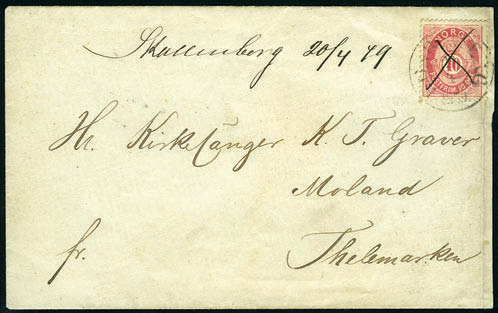 Skallenborg 20/4 79
NORGE
10
FRIM.
Hr. Kirkesånger K. T. Graver
Moland
fr. Thelemarken